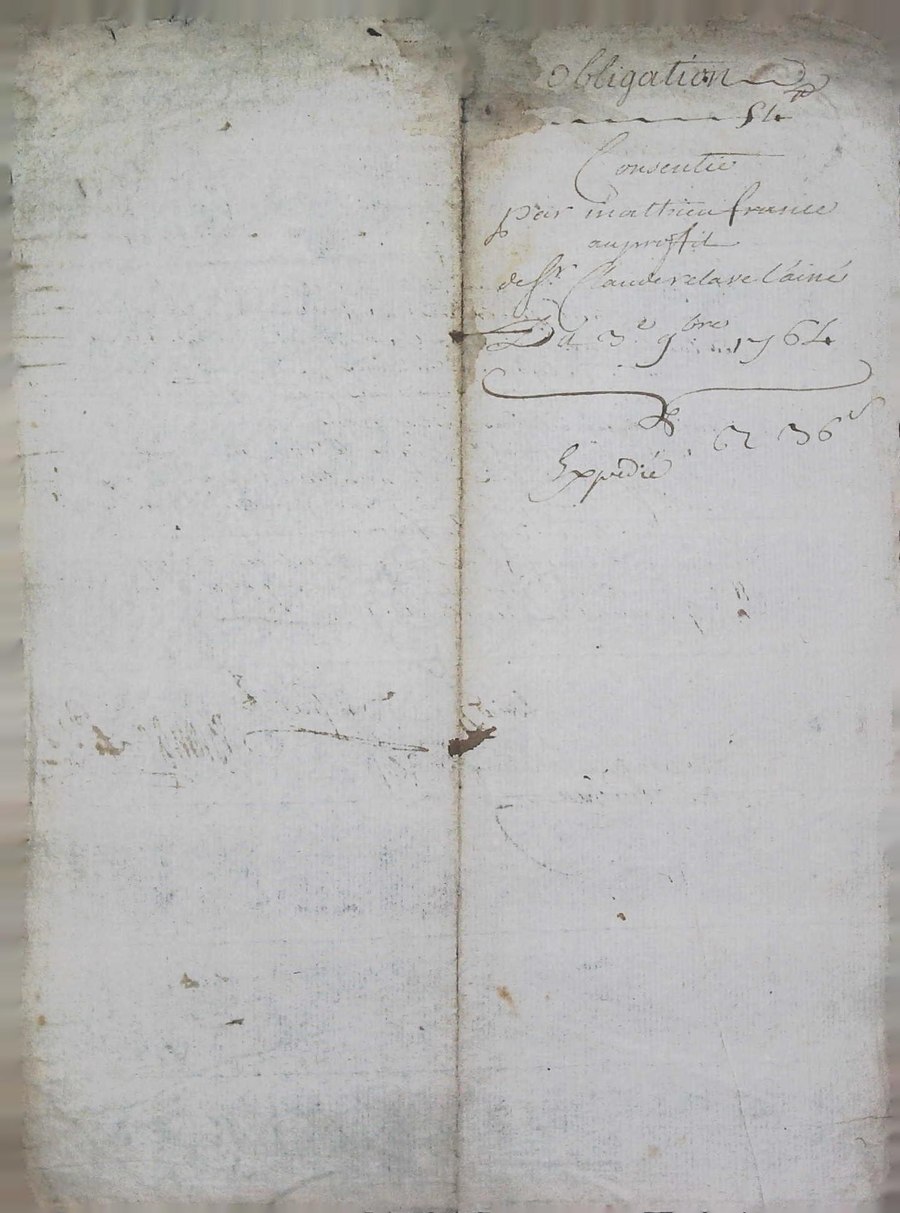 Obligation
54
Consentie
par mathieu france
au proffit
de Sr. Claude relave l'ainé
Du 3e 9bre 1764
62 36
Expedié